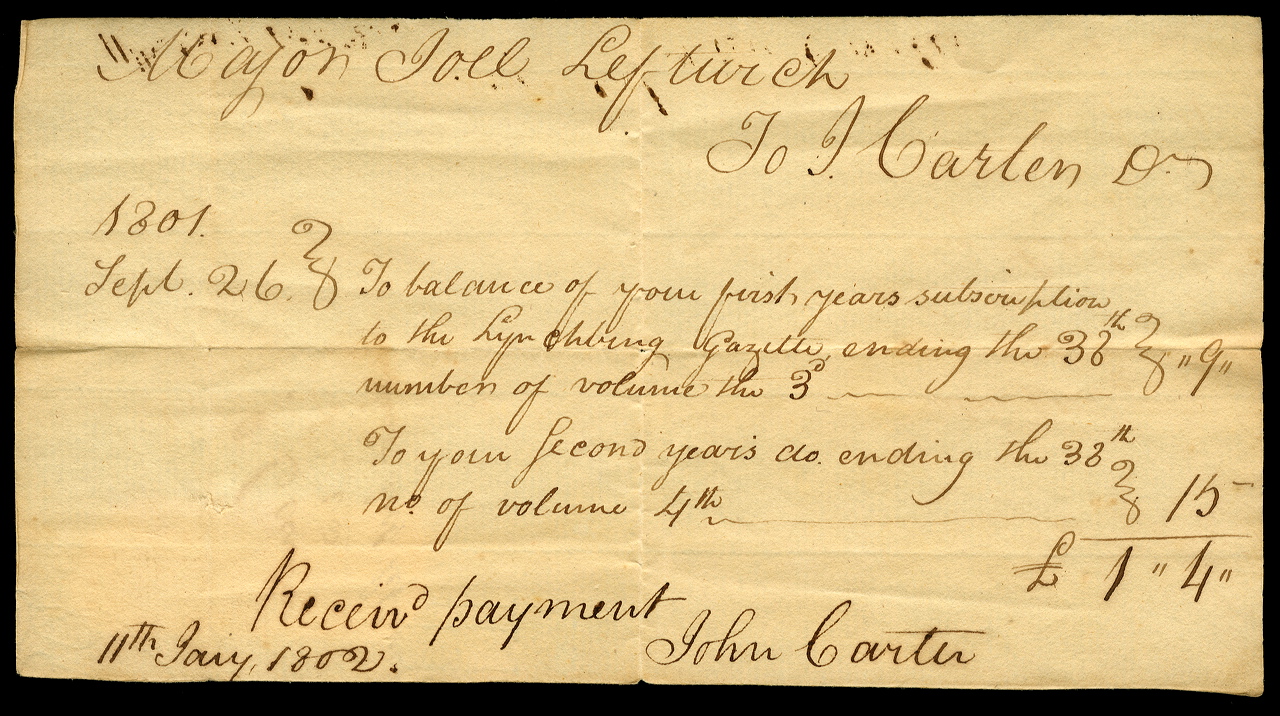 Major Joel Leftwich
To J Carter Dr
1801.
Sept. 26. To balance of your first years subscription
to the Lynchburg Gazette, ending the 38th "9"
number of volume the 3d
To your second year's do. ending the 38th
no. of volume 4th 15-
£ 1 " 4 "
Receivd payment
11th Jany, 1802. John Carter